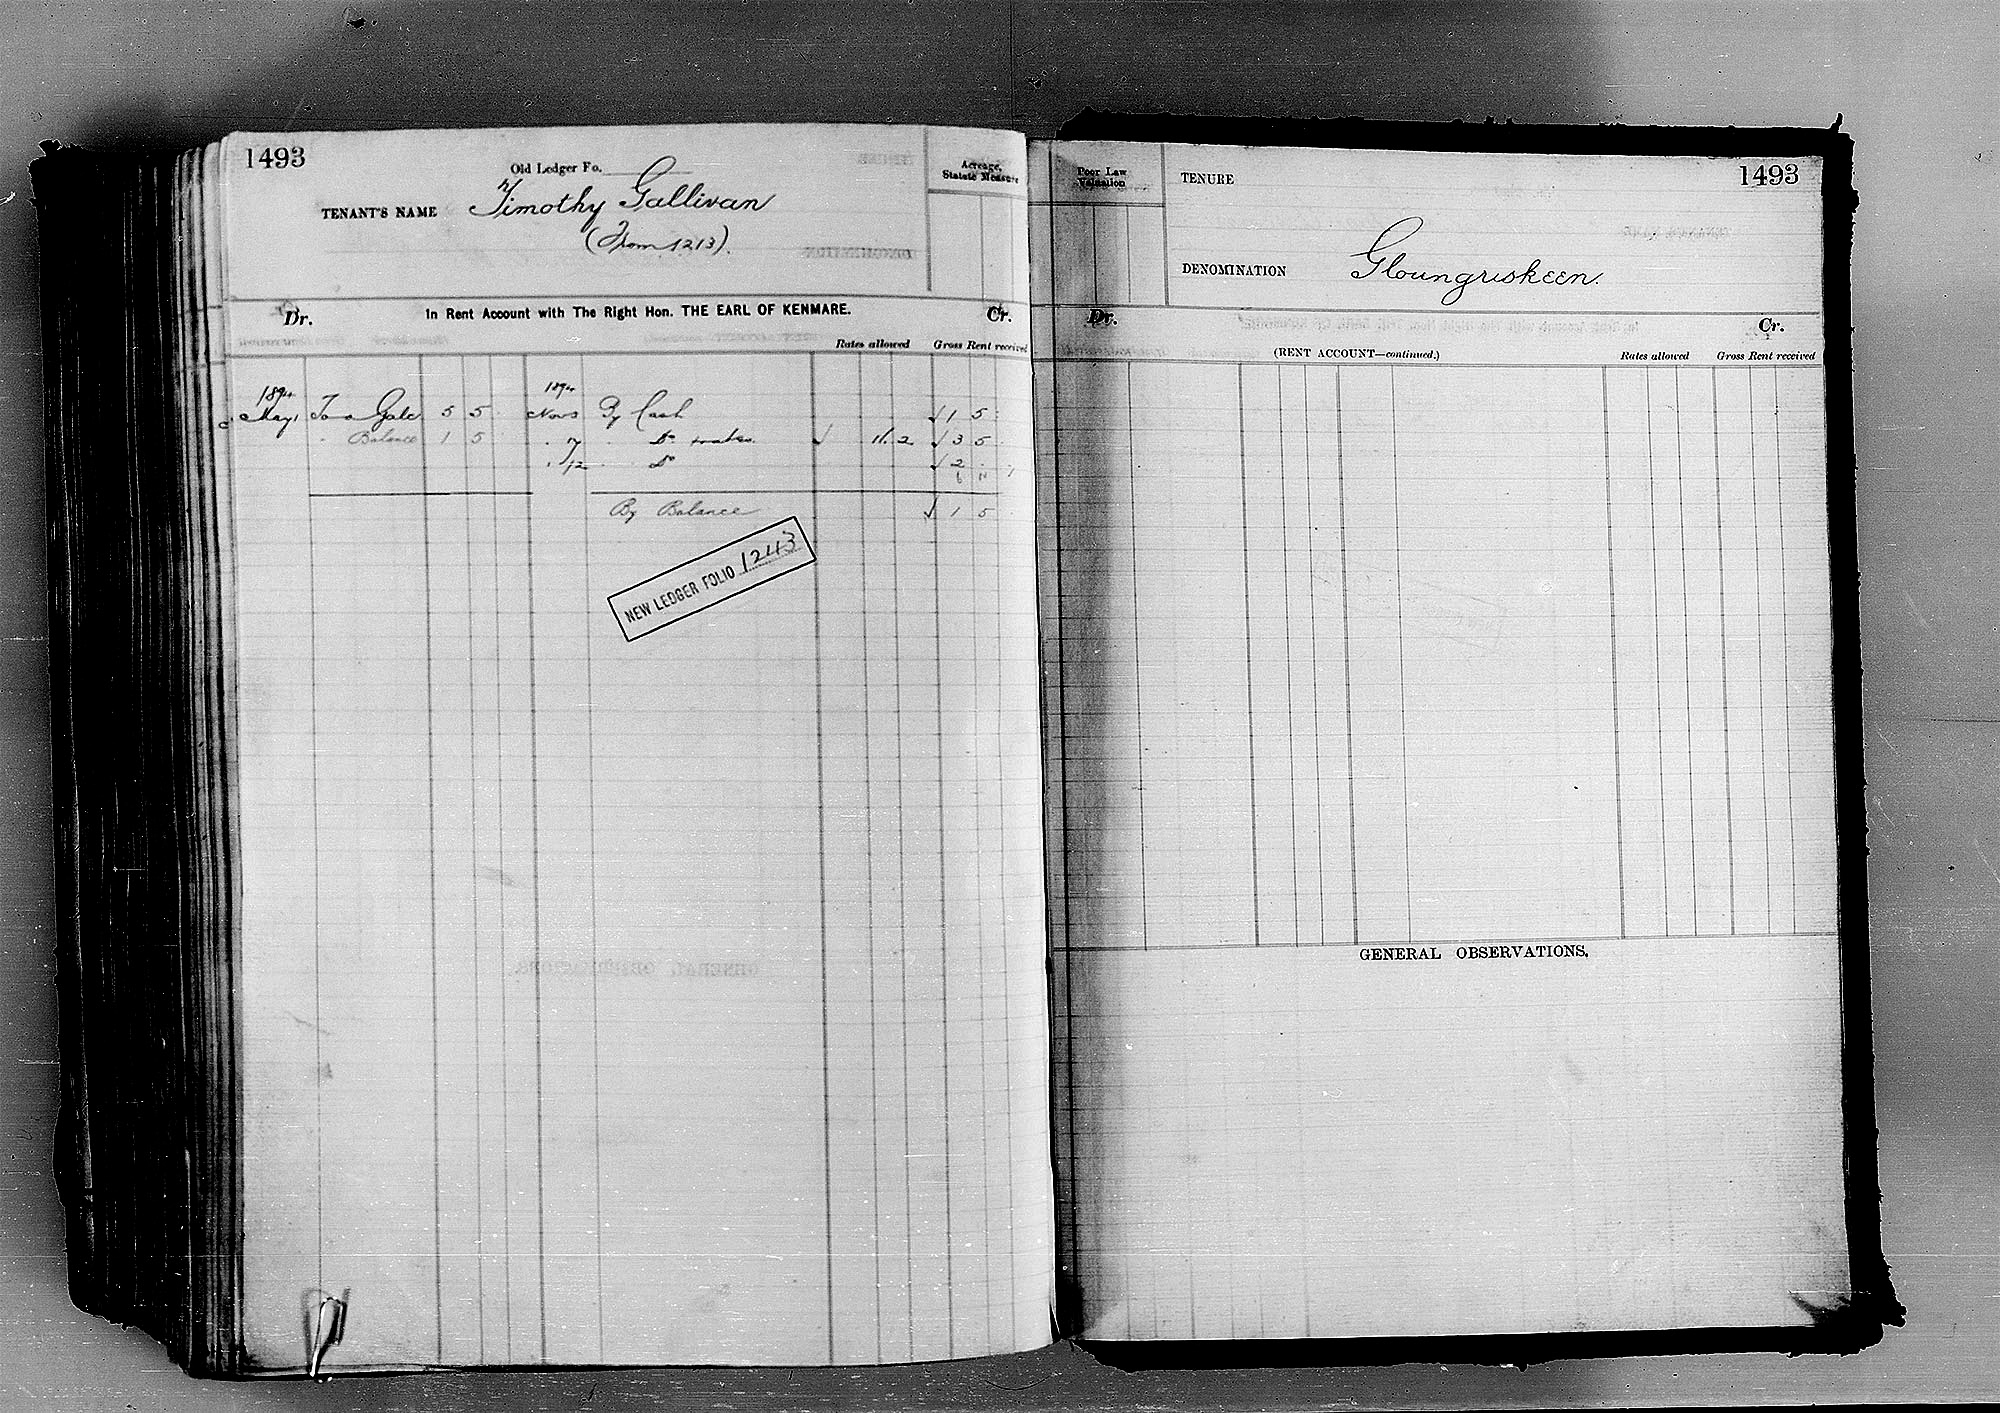 1493
Old Ledger Fo.
TENANT'S NAME Timothy Gallivan
(From 1213).
Acreage, Statute Measure
Dr. In Rent Account with The Right Hon. THE EARL OF KENMARE. Cr.
Rates allowed Gross Rent received
1894 1894
May 1 To a Gale 5 5 Nov 5 By Cash √ 1 5
" Balance 1 5 " 7 " Do √ 11. 2 √ 3 5
" 12 " Do √ 2
6 11
By Balance √ 1 5
NEW LEDGER FOLIO 1243
Poor Law Valuation
TENURE
1493
DENOMINATION Gloungriskeen.
Dr. Cr.
(RENT ACCOUNT—continued.) Rates allowed Gross Rent received
GENERAL OBSERVATIONS.